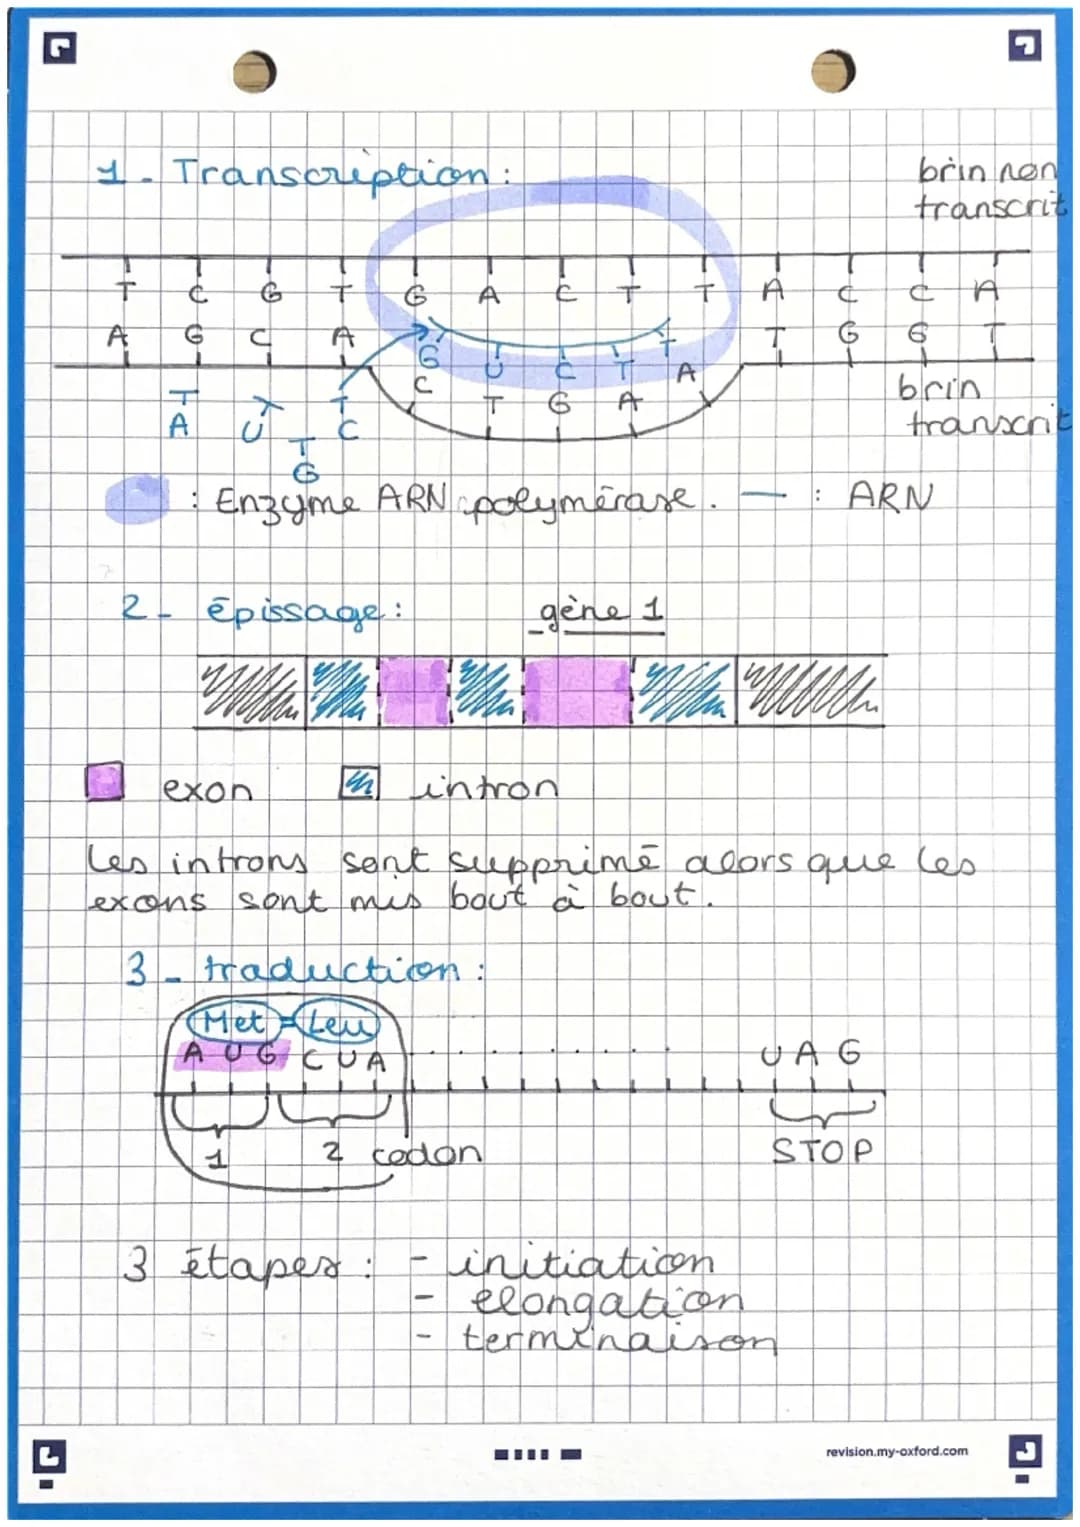 1 - Transcription :
brin non
transcrit
T C G T G A C T T A C C A
A G C A T G G T
G U C T T
C T G A A
brin
transcrit
A U G C
: Enzyme ARN polymérase. — : ARN
2 - épissage : gène 1
exon intron
Les introns sont supprimé alors que les
exons sont mis bout à bout.
3 - traduction :
Met = Leu
A U G C U A . . . . . . . . . . U A G
1 2 codon STOP
3 étapes : - initiation
- elongation
- terminaison
revision.my-oxford.com